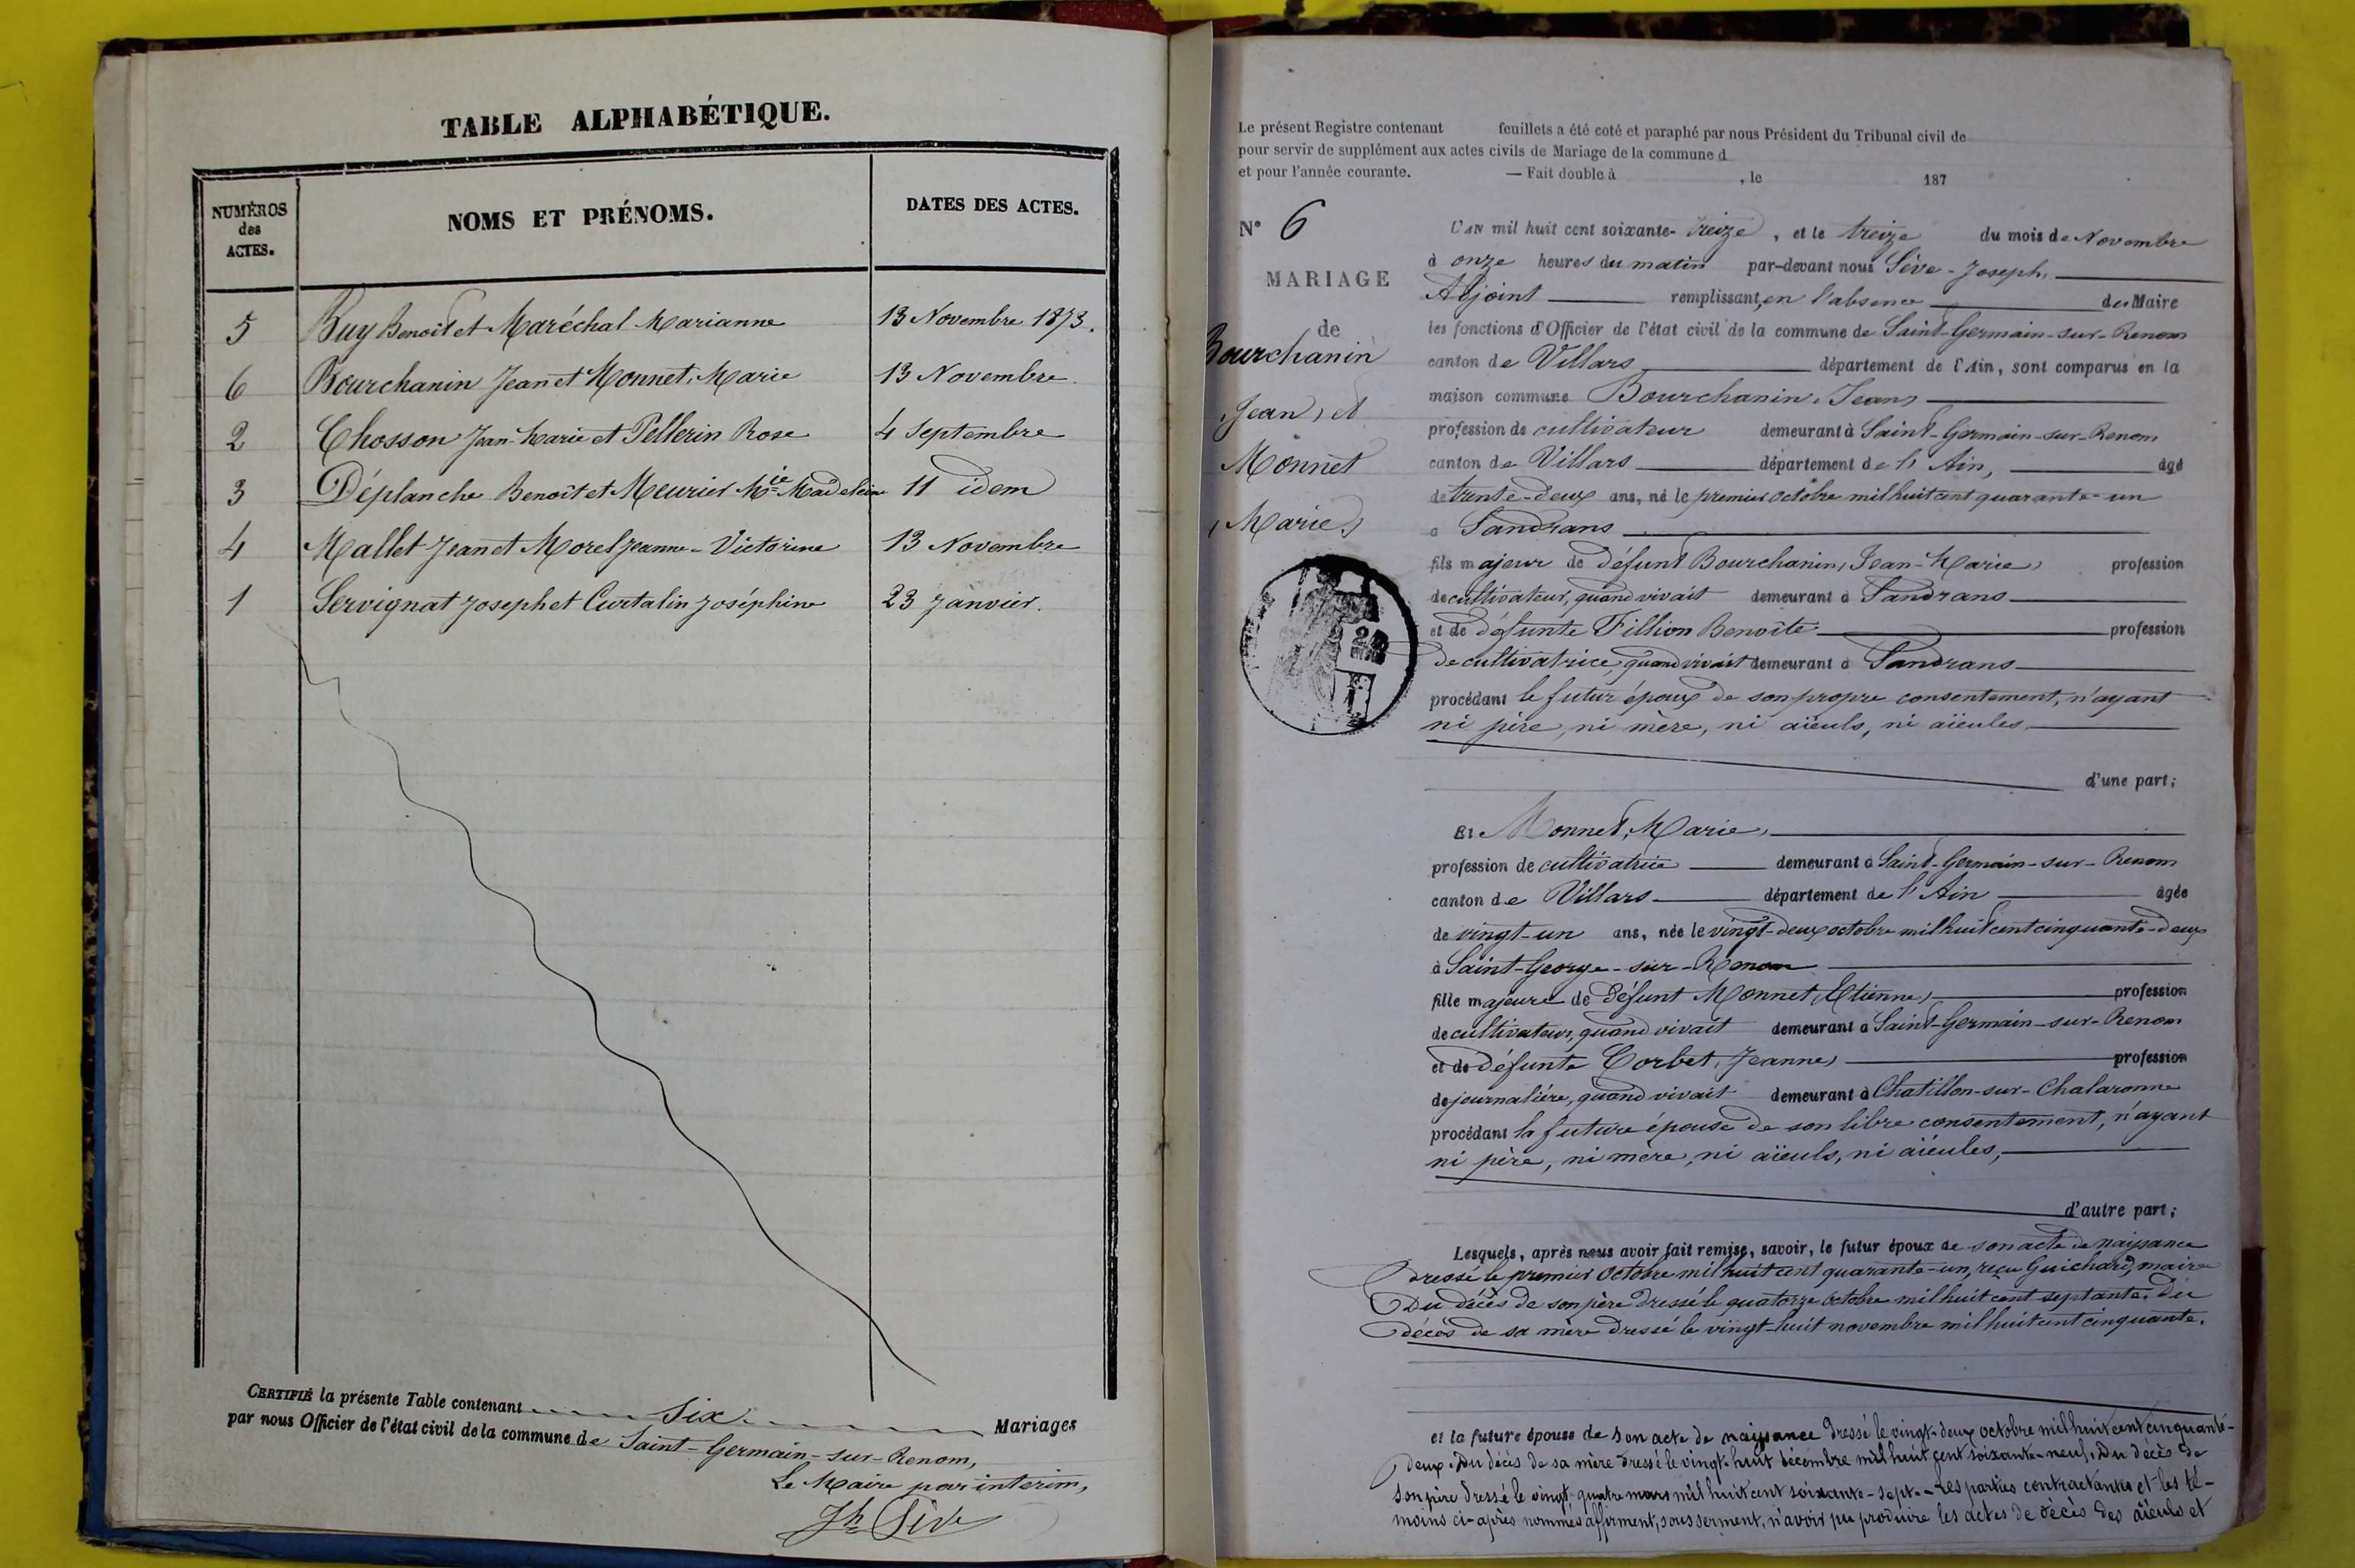 TABLE ALPHABÉTIQUE.
NUMÉROS des ACTES.
NOMS ET PRÉNOMS.
DATES DES ACTES.
5 Buy Benoît et Maréchal Marianne 13 Novembre 1873.
6 Bourchanin Jean et Monnet, Marie 13 Novembre.
2 Chosson Jean-Marie et Pellerin Rose 4 Septembre
3 Déplanche Benoît et Meurier Mie Madeleine 11 idem
4 Mallet Jean et Morel Jeanne-Victorine 13 Novembre
1 Servignat Joseph et Curtalin Joséphine 23 Janvier.
CERTIFIÉ la présente Table contenant six Mariages
par nous Officier de l'état civil de la commune de Saint-Germain-sur-Renom,
Le Maire par interim,
Jh Sève
Le présent Registre contenant feuillets a été coté et paraphé par nous Président du Tribunal civil de
pour servir de supplément aux actes civils de Mariage de la commune d
et pour l'année courante. — Fait double à , le 187
N° 6
MARIAGE
de
Bourchanin
Jean, et
Monnet
Marie
L'AN mil huit cent soixante-treize, et le treize du mois de Novembre
à onze heures du matin par-devant nous Sève-Joseph,
Adjoint remplissant, en l'absence du Maire
les fonctions d'Officier de l'état civil de la commune de Saint-Germain-sur-Renom
canton de Villars département de l'Ain, sont comparus en la
maison commune Bourchanin, Jean,
profession de cultivateur demeurant à Saint-Germain-sur-Renom
canton de Villars département de l'Ain, âgé
de trente-deux ans, né le premier octobre mil huit cent quarante-un
à Sandrans
fils majeur de défunt Bourchanin, Jean-Marie, profession
de cultivateur, quand vivait demeurant à Sandrans
et de défunte Fillion Benoîte profession
de cultivatrice, quand vivait demeurant à Sandrans
procédant le futur époux de son propre consentement, n'ayant
ni père, ni mère, ni aïeuls, ni aïeules,
d'une part;
Et Monnet, Marie,
profession de cultivatrice demeurant à Saint-Germain-sur-Renom
canton de Villars département de l'Ain âgée
de vingt-un ans, née le vingt-deux octobre mil huit cent cinquante-deux
à Saint-George-sur-Renom
fille majeure de défunt Monnet, Etienne, profession
de cultivateur, quand vivait demeurant à Saint-Germain-sur-Renom
et de défunte Corbet, Jeanne, profession
de journalière, quand vivait demeurant à Chatillon-sur-Chalaronne
procédant la future épouse de son libre consentement, n'ayant
ni père, ni mère, ni aïeuls, ni aïeules,
d'autre part;
Lesquels, après nous avoir fait remise, savoir, le futur époux de son acte de naissance
dressé le premier Octobre mil huit cent quarante-un, reçu Guichard, maire
Du décès de son père dressé le quatorze octobre mil huit cent septante. Du
décès de sa mère dressé le vingt-huit novembre mil huit cent cinquante.
et la future épouse de son acte de naissance dressé le vingt-deux octobre mil huit cent cinquante-
deux. Du décès de sa mère dressé le vingt-huit décembre mil huit cent soixante-neuf. Du décès de
son père dressé le vingt-quatre mars mil huit cent soixante-sept. - Les parties contractantes et les té-
moins ci-après nommés affirment, sous serment, n'avoir pu produire les actes de décès des aïeuls et